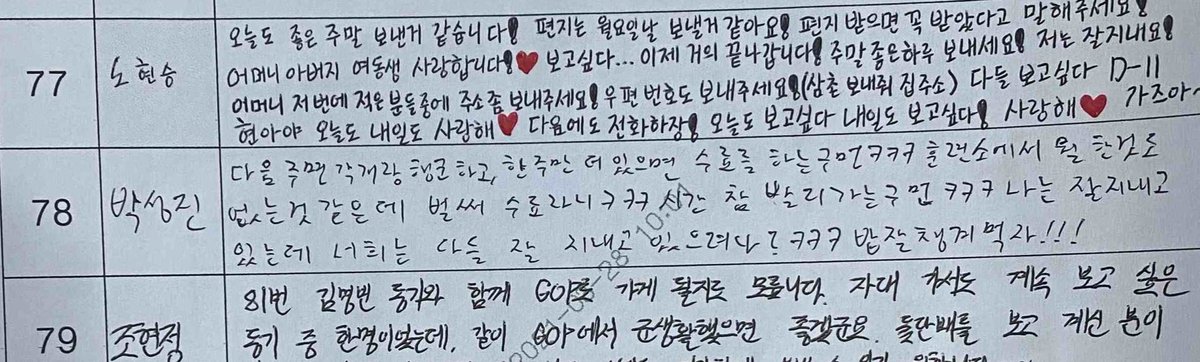 오늘도 좋은 주말 보낸거 같습니다! 편지는 월요일날 보낼거 같아요! 편지 받으면 꼭 받았다고 말해주세요!
77 노현승 어머니 아버지 여동생 사랑합니다!♥ 보고싶다... 이제 거의 끝나갑니다! 주말 좋은하루 보내세요! 저는 잘지내요!
어머니 저번에 적은 분들중에 주소좀 보내주세요! 우편 번호도 보내주세요!(삼촌 보내줘 집주소) 다들 보고싶다 D-11
현아야 오늘도 내일도 사랑해♥ 다음에도 전화하장! 오늘도 보고싶다 내일도 보고싶다! 사랑해♥ 가즈아~
다음 주면 각개랑 행군하고, 한주만 더 있으면 수료를 하는구먼ㅋㅋㅋ 훈련소에서 뭘 한것도
78 박성진 없는것 같은데 벌써 수료라니ㅋㅋㅋ 시간 참 빨리가는구먼 ㅋㅋㅋ 나는 잘지내고
있는데 너희는 다들 잘 지내고 있으려나? ㅋㅋㅋ 밥잘챙겨먹자!!!
81번 동기와 함께 GOP로 가게 될지도 모릅니다. 자대 가서도 계속 보고 싶은
79 조현정 동기 중 한명이었는데, 같이 GOP에서 군생활했으면 좋겠군요. 보고 계신 분이